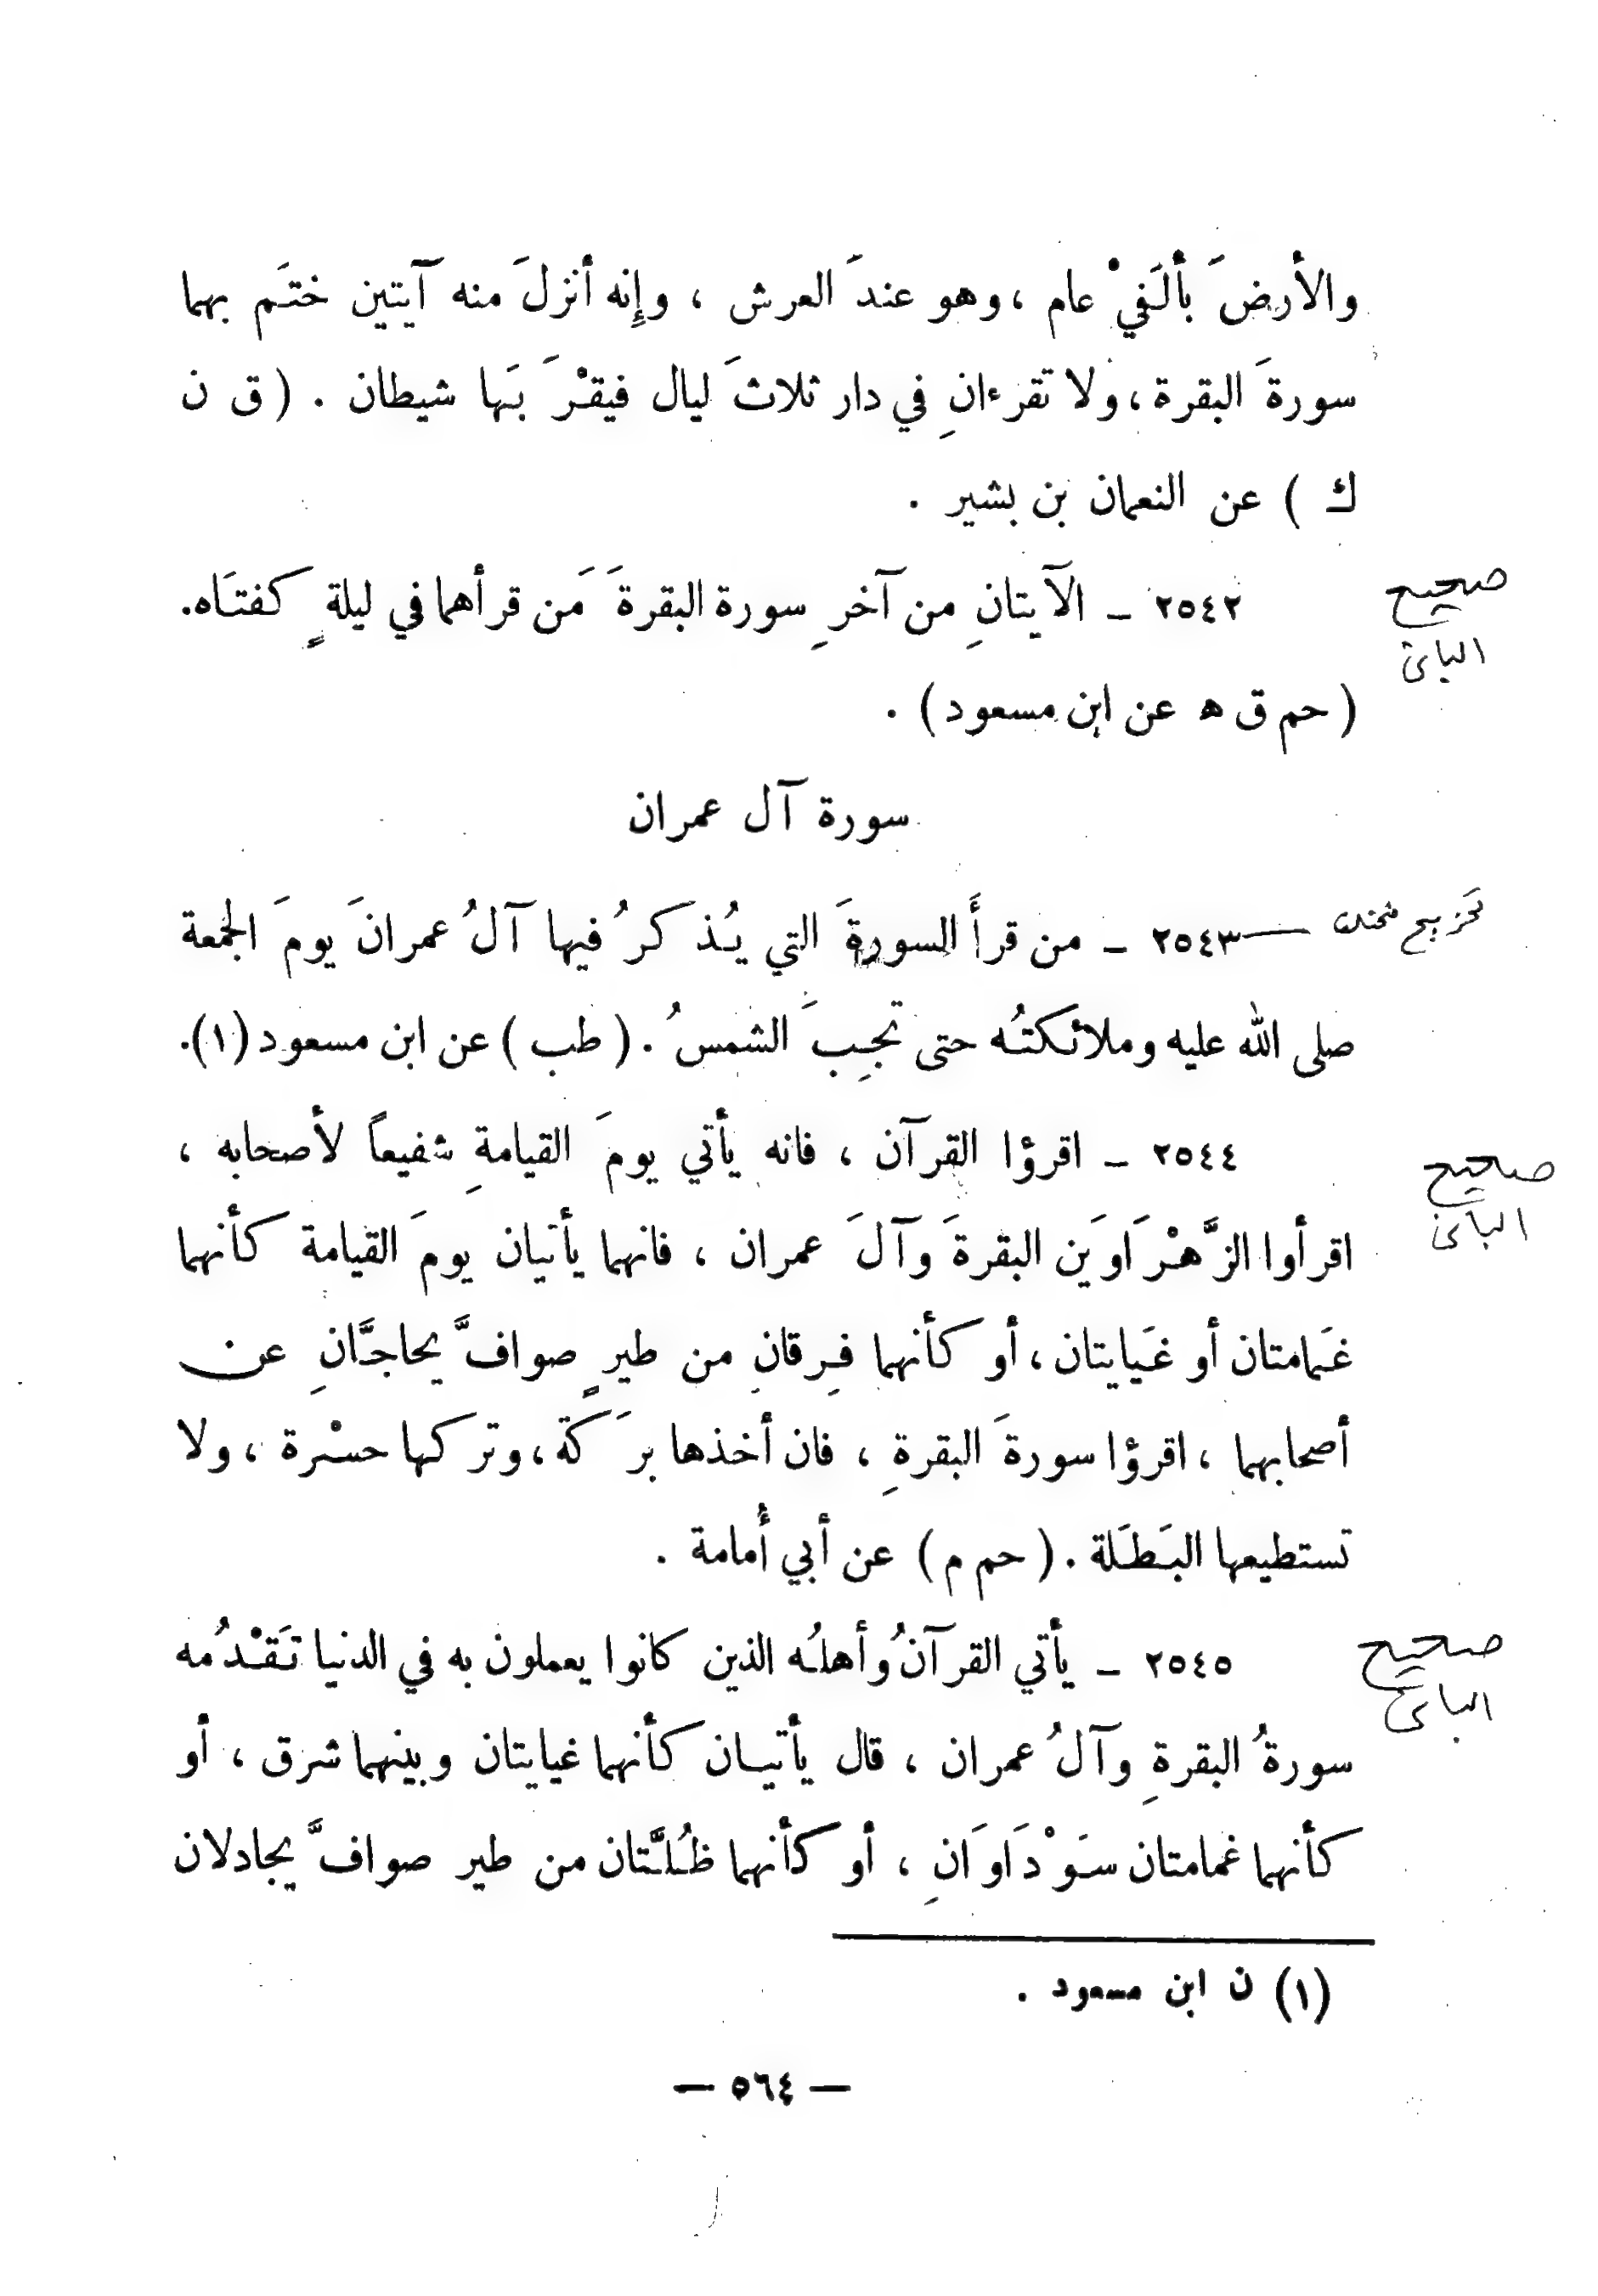 والأرضَ بألَفيْ عام ، وهو عندَ العرش ، وإِنه أنزلَ منه آيتين ختَم بهما
سورةَ البقرة ، ولا تقرءانِ في دار ثلاثَ ليال فيقْرَبَها شيطان . ( ق ن
ك ) عن النعمان بن بشير .
صحيح
البانی
٢٥٤٢ ـ الآيتانِ من آخرِ سورة البقرةَ مَن قرأهما في ليلةٍ كفتَاه.
( حم ق ه عن ابن مسعود ) .
سورة آل عمران
٢٥٤٣ ـ من قرأَ السورةَ التي يُذكرُ فيها آلُ عمرانَ يومَ الجمعة
صلى الله عليه وملائكتُه حتى تجِبَ الشمسُ . ( طب ) عن ابن مسعود (١).
صحيح
البانی
٢٥٤٤ ـ اقرؤا القرآن ، فانه يأتي يومَ القيامةِ شفيعاً لأصحابه ،
اقرأوا الزَّهْرَاوَين البقرةَ وآلَ عمران ، فانهما يأتيان يومَ القيامة كأنهما
غَمامتان أو غَيايتان ، أو كأنهما فِرقانِ من طيرٍ صوافَّ يحاجَّانِ عن
أصحابهما ، اقرؤا سورةَ البقرةِ ، فان أخذها برَكة ، وتركها حسْرة ، ولا
تستطيعها البَطَلة . ( حم م ) عن أبي أُمامة .
صحيح
البانی
٢٥٤٥ ـ يأتي القرآنُ وأهلُه الذين كانوا يعملون به في الدنيا تَقْدُمه
سورةُ البقرةِ وآلُ عمران ، قال يأتيـان كأنهما غيايتان وبينهما شرق ، أو
كأنهما غمامتان سَوْدَاوَانِ ، أو كأنهما ظُلَّتان من طير صوافَّ يجادلان
(١) ن ابن مسعود .
— ٥٦٤ —